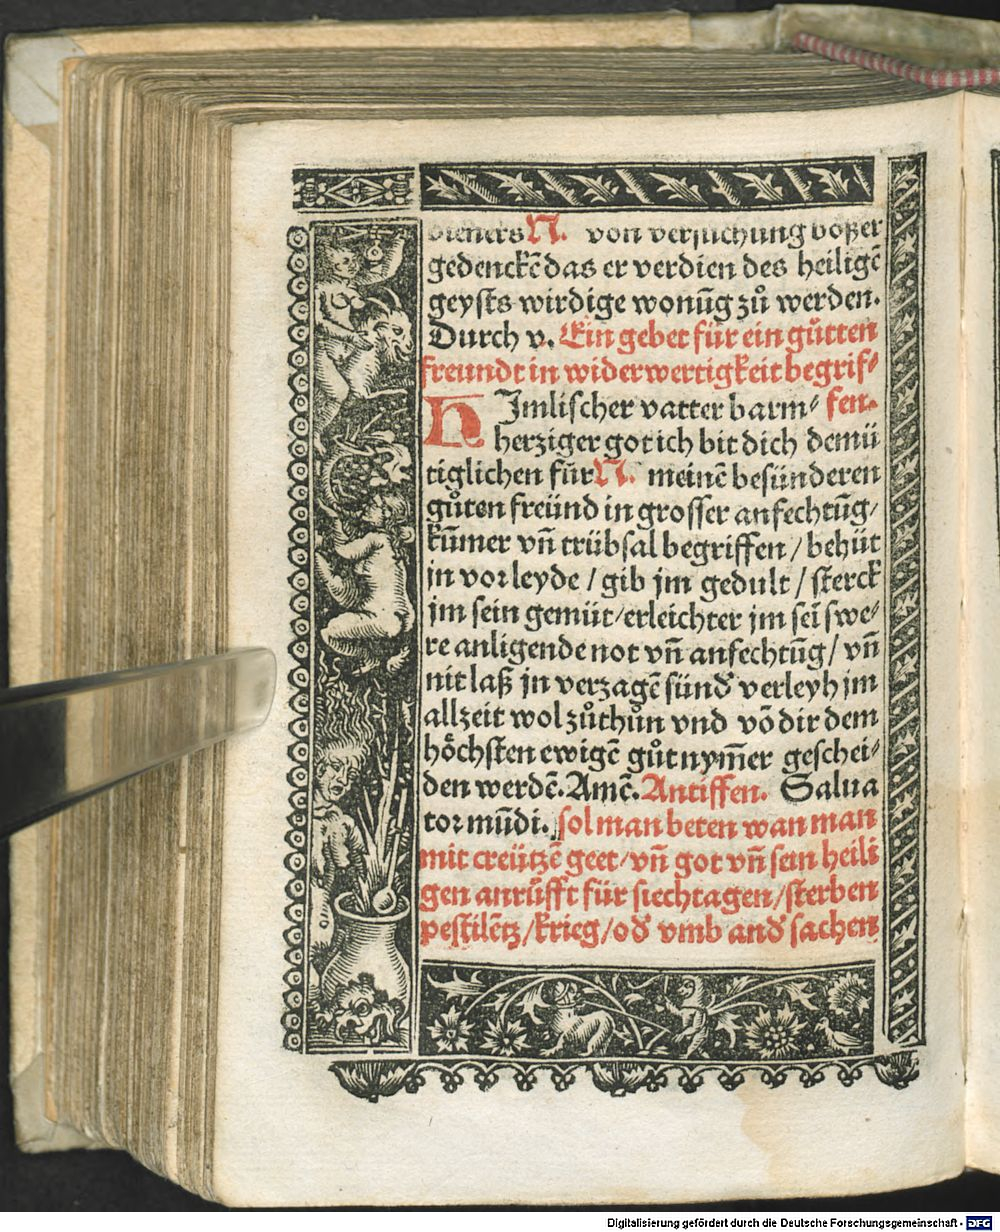 dieners N. von versuchung bößer
gedenckē das er verdien des heiligē
geysts wirdige wonūg zů werden.
Durch v. Ein gebet für ein gůtten
freundt in widerwertigkeit begrif⸗
fen.
HImlischer vatter barm⸗
herziger got ich bit dich demü
tiglichen für N. meinē besünderen
gůten freünd in grosser anfechtūg/
kūmer vn̄ trübsal begriffen/ behüt
jn vor leyde/ gib jm gedult/ sterck
jm sein gemüt/ erleichter jm sei͂ swe⸗
re anligende not vn̄ anfechtūg/ vn̄
nit laß jn verzagē sünď verleyh jm
allzeit wol zůthůn vnd vō dir dem
höchsten ewigē gůt nym̄er geschei⸗
den werdē. Amē. Antiffen. Salua
tor mūdi. sol man beten wan man
mit creützē geet/ vn̄ got vn̄ sein heili
gen anrůfft für siechtagen/ sterben
pestilētz/ krieg/ oď vmb anď sachen
Digitalisierung gefördert durch die Deutsche Forschungsgemeinschaft - DFG